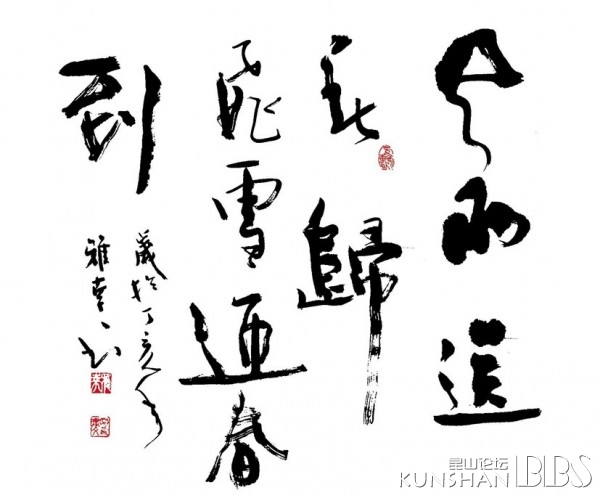 风雨送
春歸
飛雪迎春
到
歲於丁亥年
雅
昆山论坛
KUNSHAN BBS